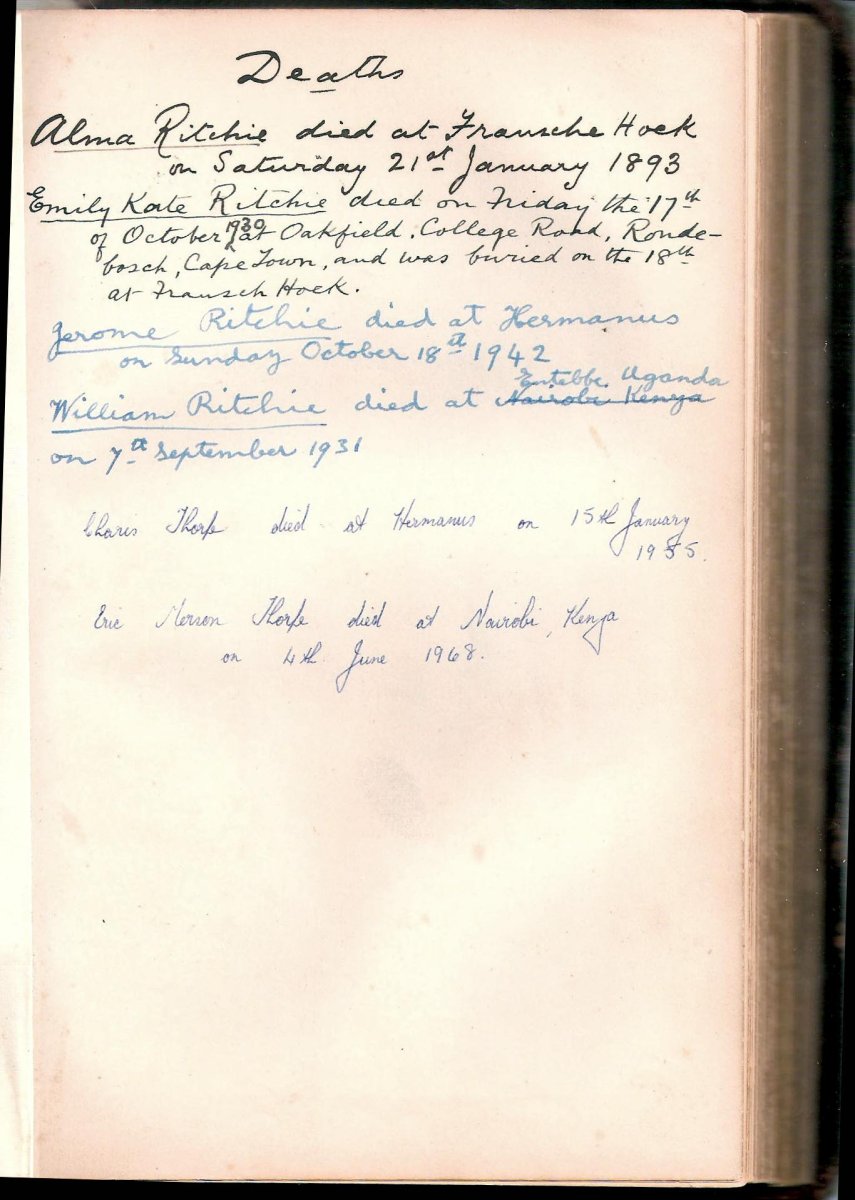 Deaths
Alma Ritchie died at Fransche Hoek
on Saturday 21st January 1893
Emily Kate Ritchie died on Friday the 17th
of October 1930 at Oakfield, College Road, Ronde-
bosch, Cape Town, and was buried on the 18th
at Fransch Hoek.
Jerome Ritchie died at Hermanus
on Sunday October 18th 1942
Entebbe Uganda
William Ritchie died at Nairobi Kenya
on 7th September 1931
Charis Thorpe died at Hermanus on 15th January
1955.
Eric Merson Thorpe died at Nairobi, Kenya
on 4th June 1968.